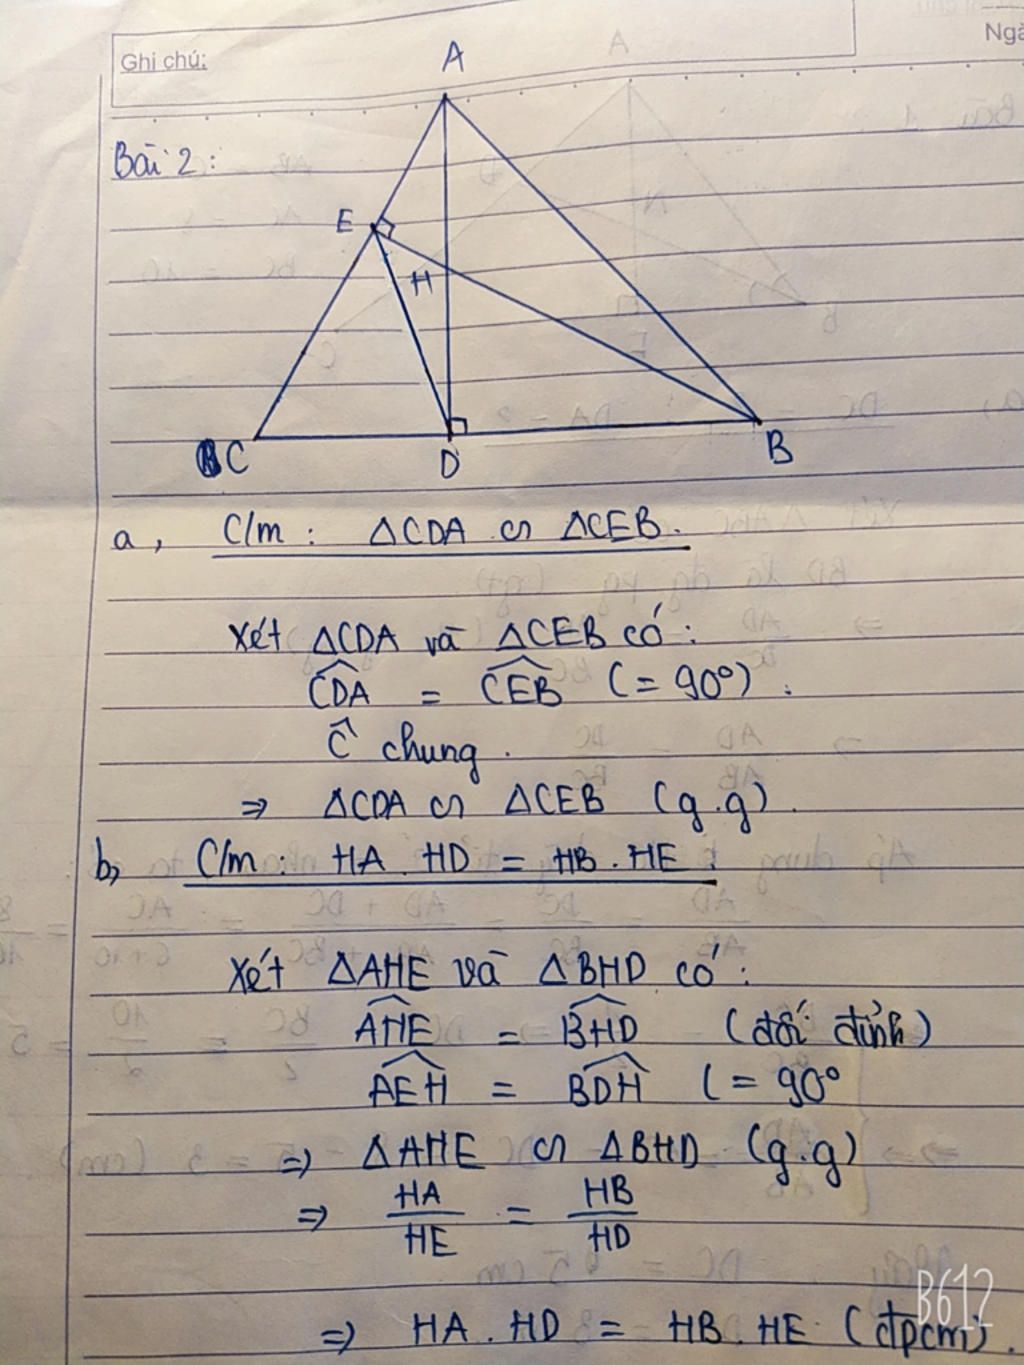 Ghi chú:
Ngà
A
Bài 2:
E
H
C
D
B
a, C/m: ΔCDA ∽ ΔCEB.
Xét ΔCDA và ΔCEB có:
CDA = CEB (= 90°).
Ĉ chung.
⇒ ΔCDA ∽ ΔCEB (g.g).
b, C/m: HA.HD = HB.HE.
Xét ΔAHE và ΔBHD có:
AHE = BHD (đối đỉnh)
AEH = BDH (= 90°
⇒ ΔAHE ∽ ΔBHD (g.g)
⇒ HA/HE = HB/HD
⇒ HA.HD = HB.HE (đpcm).
B612